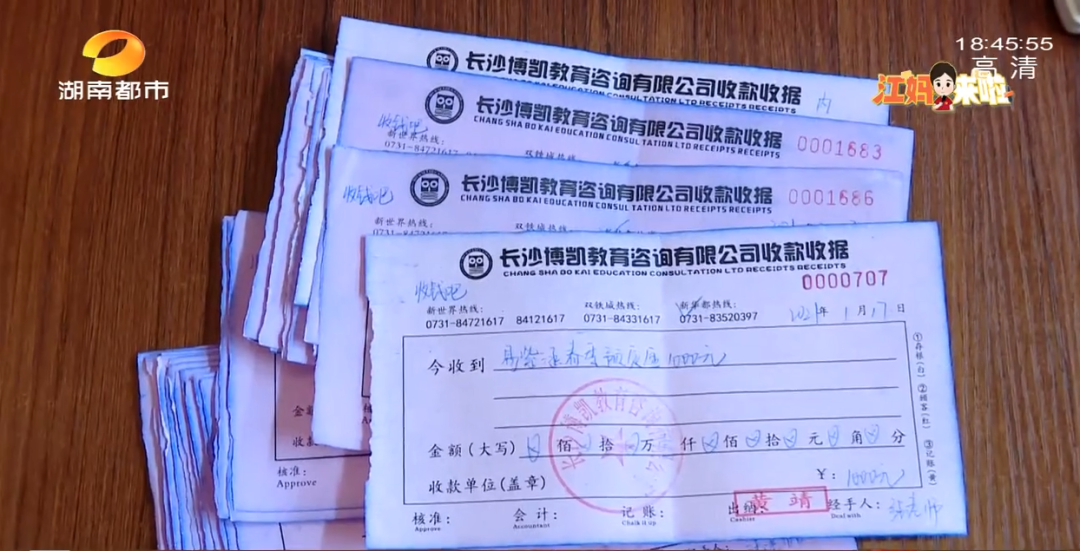 湖南都市
18:45:55
高清
江妈来啦
长沙博凯教育咨询有限公司收款收据
内
长沙博凯教育咨询有限公司收款收据
CHANG SHA BO KAI EDUCATION CONSULTATION LTD RECEIPTS RECEIPTS
0001683
收钱吧
新世界热线:
0731-84721617
双铁城热线:
长沙博凯教育咨询有限公司收款收据
CHANG SHA BO KAI EDUCATION CONSULTATION LTD RECEIPTS RECEIPTS
0001686
收钱吧
新世界热线:
双铁城热线:
长沙博凯教育咨询有限公司收款收据
CHANG SHA BO KAI EDUCATION CONSULTATION LTD RECEIPTS RECEIPTS
0000707
收钱吧
新世界热线: 双铁城热线: 新华都热线:
0731-84721617 84121617 0731-84331617 0731-83520397
2021年1月17日
今收到 1000元
金额(大写) 佰 拾 万 仟 佰 拾 元 角 分
¥: 1000元
收款单位(盖章)
核准: 会计: 记账: 出纳 黄靖 经手人:
Approve Accountant Chalk it up Cashier Deal with
①存根(白) ②顾客(红) ③记账(黄)
核准:
Approve